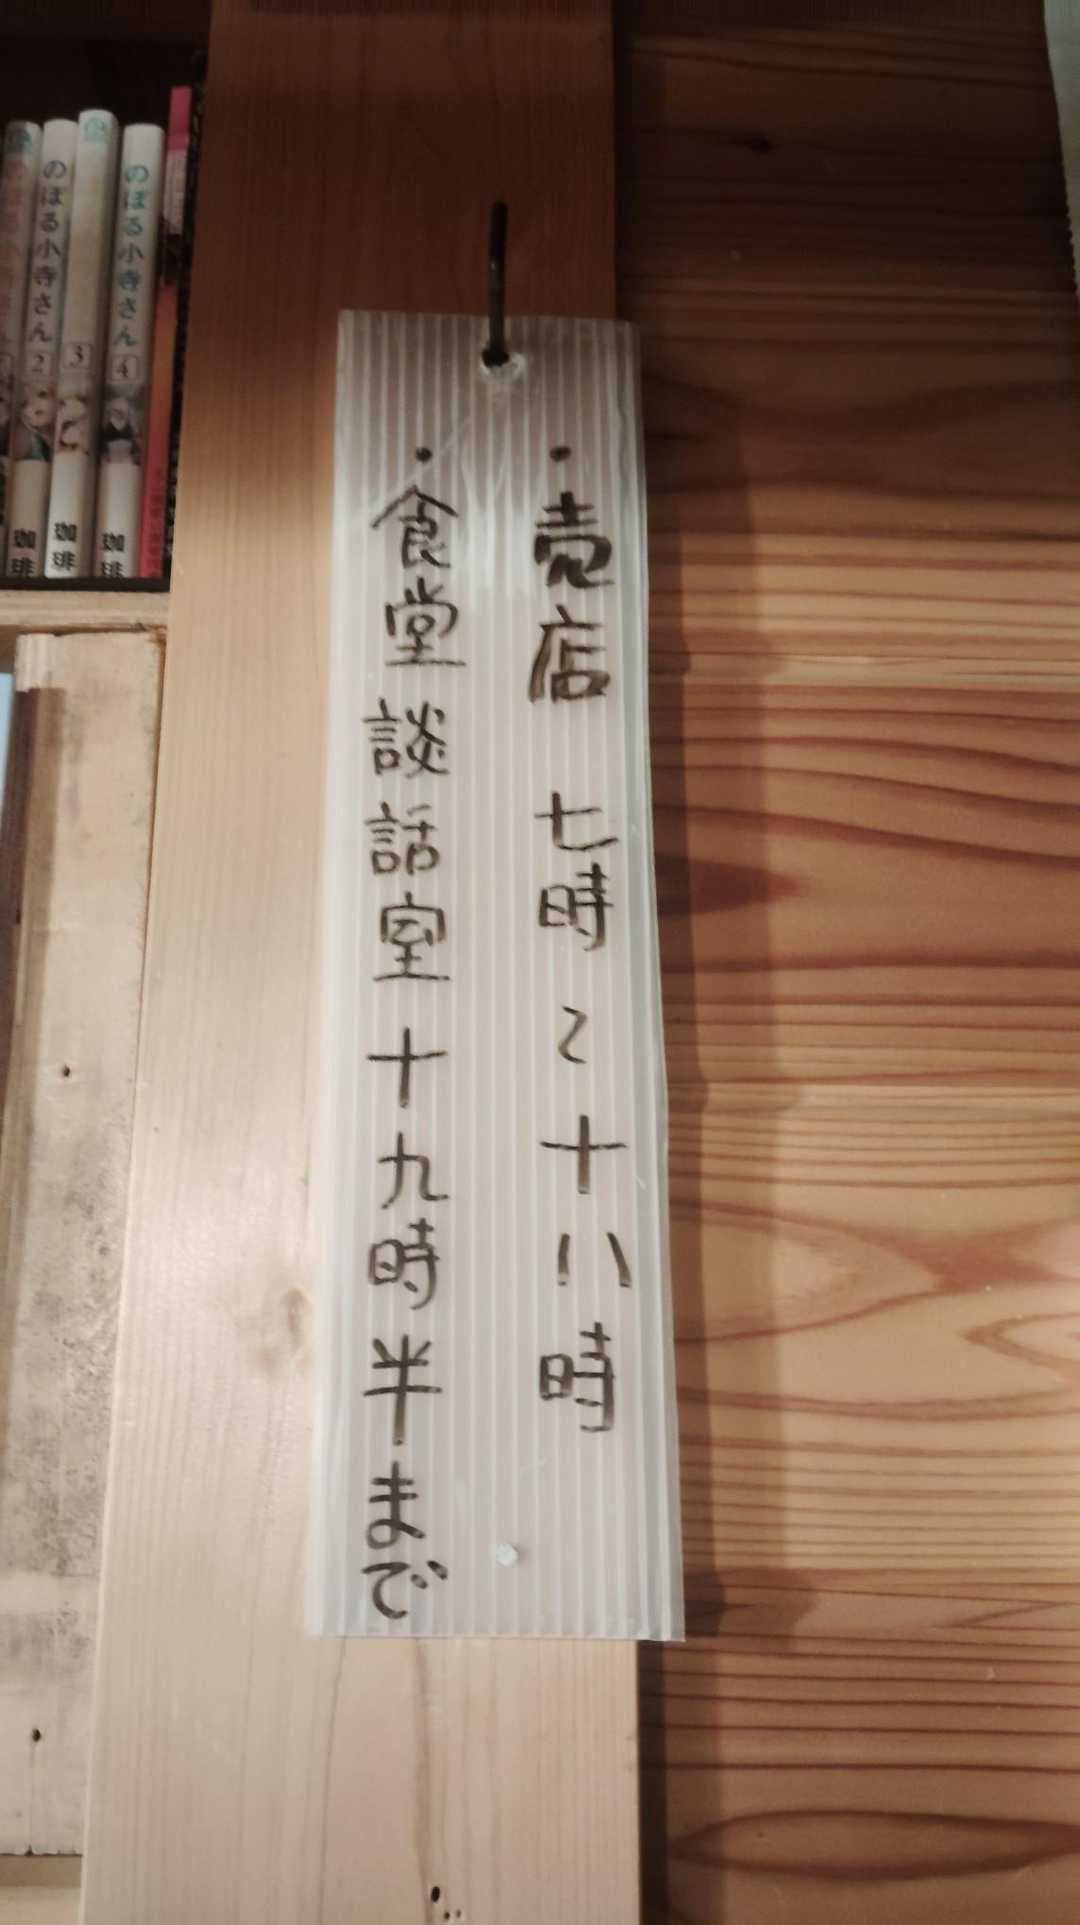 ・売店 七時〜十八時
・食堂談話室十九時半まで
のぼる小寺さん 2 珈琲
3 珈琲
のぼる小寺さん 4 珈琲